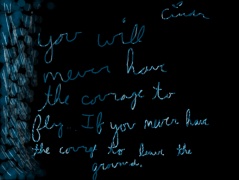 you will
never have
the courage to
fly. If you never have
the courage to leave the
ground.